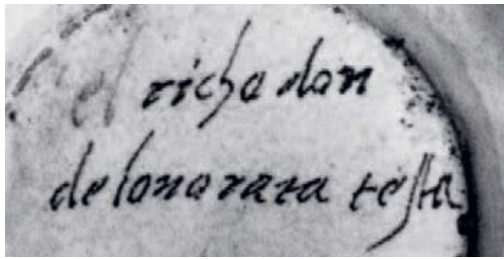 el richo don
de lonorata testa